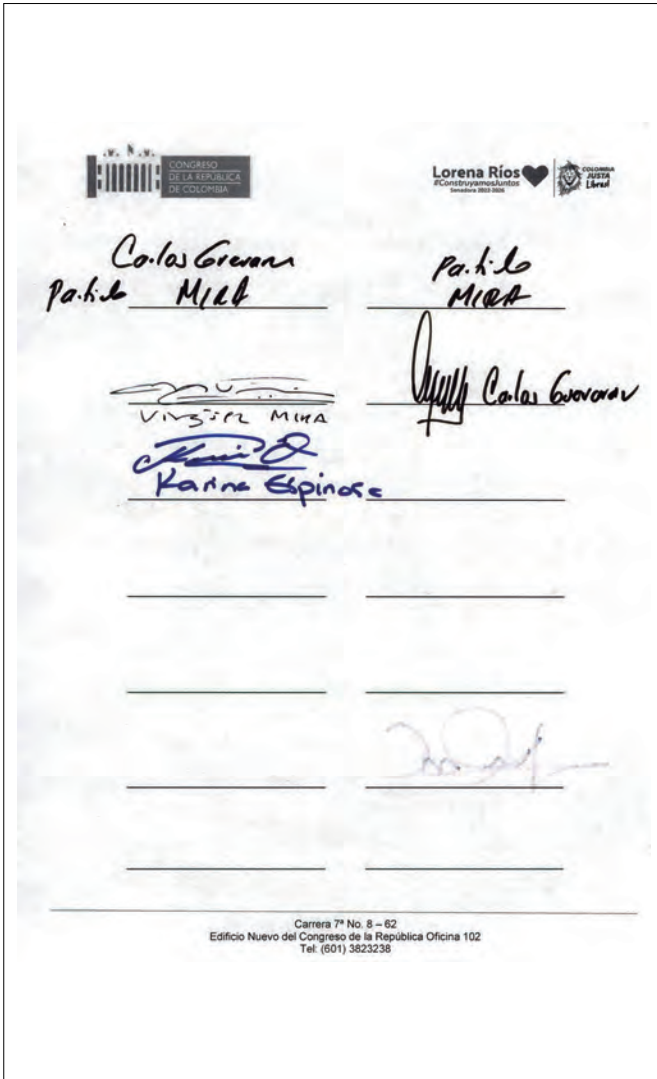 CONGRESO
DE LA REPÚBLICA
DE COLOMBIA
Lorena Ríos
#ConstruyamosJuntos
Senadora 2022-2026
COLOMBIA
JUSTA
Libres
Carlos Guevara
Partido MIRA
Partido
MIRA
MIRA
Carlos Guevara
Karina Espinosa
Carrera 7ª No. 8 – 62
Edificio Nuevo del Congreso de la República Oficina 102
Tel: (601) 3823238